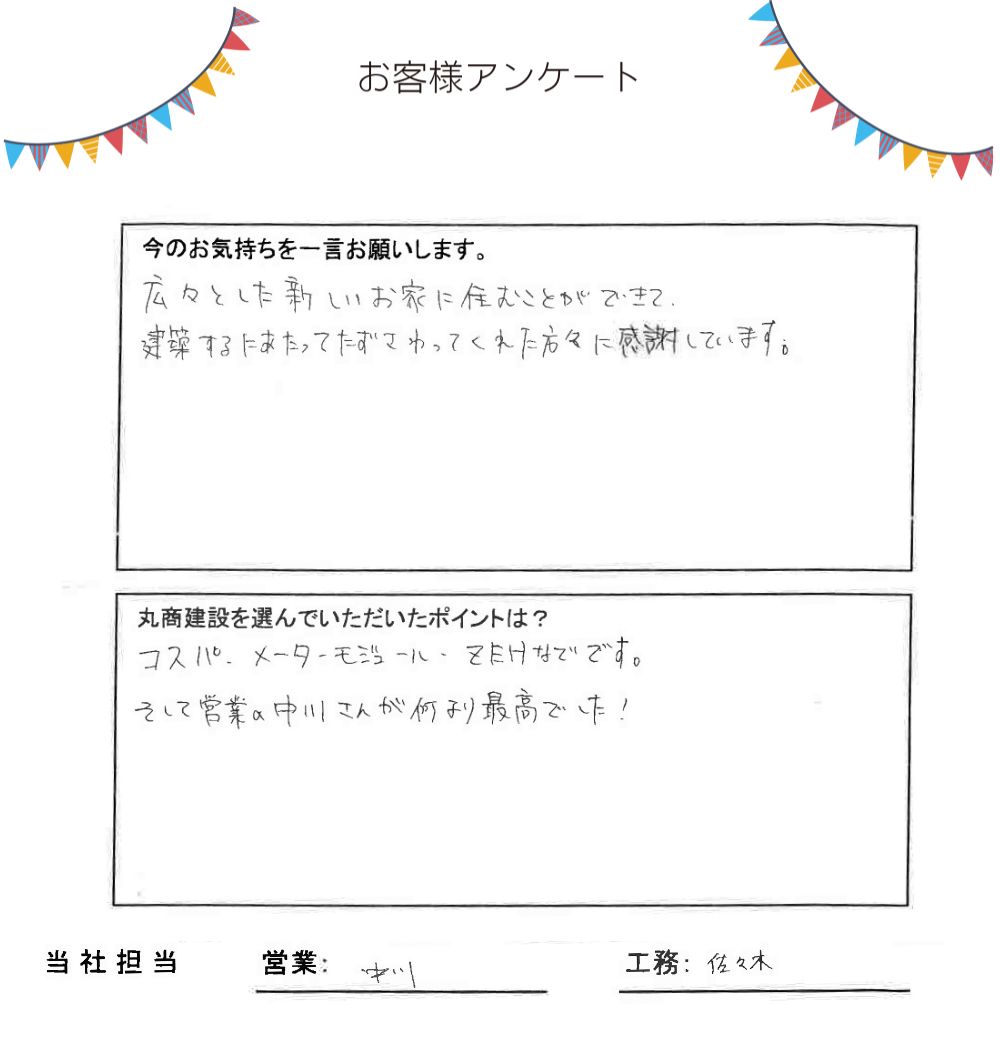 お客様アンケート
今のお気持ちを一言お願いします。
広々とした新しいお家に住むことができて、
建築するにあたってたずさわってくれた方々に感謝しています。
丸商建設を選んでいただいたポイントは?
コスパ、メーターモジュール・ZEHなどです。
そして営業の中川さんが何より最高でした!
当社担当 営業: 中川 工務: 佐々木